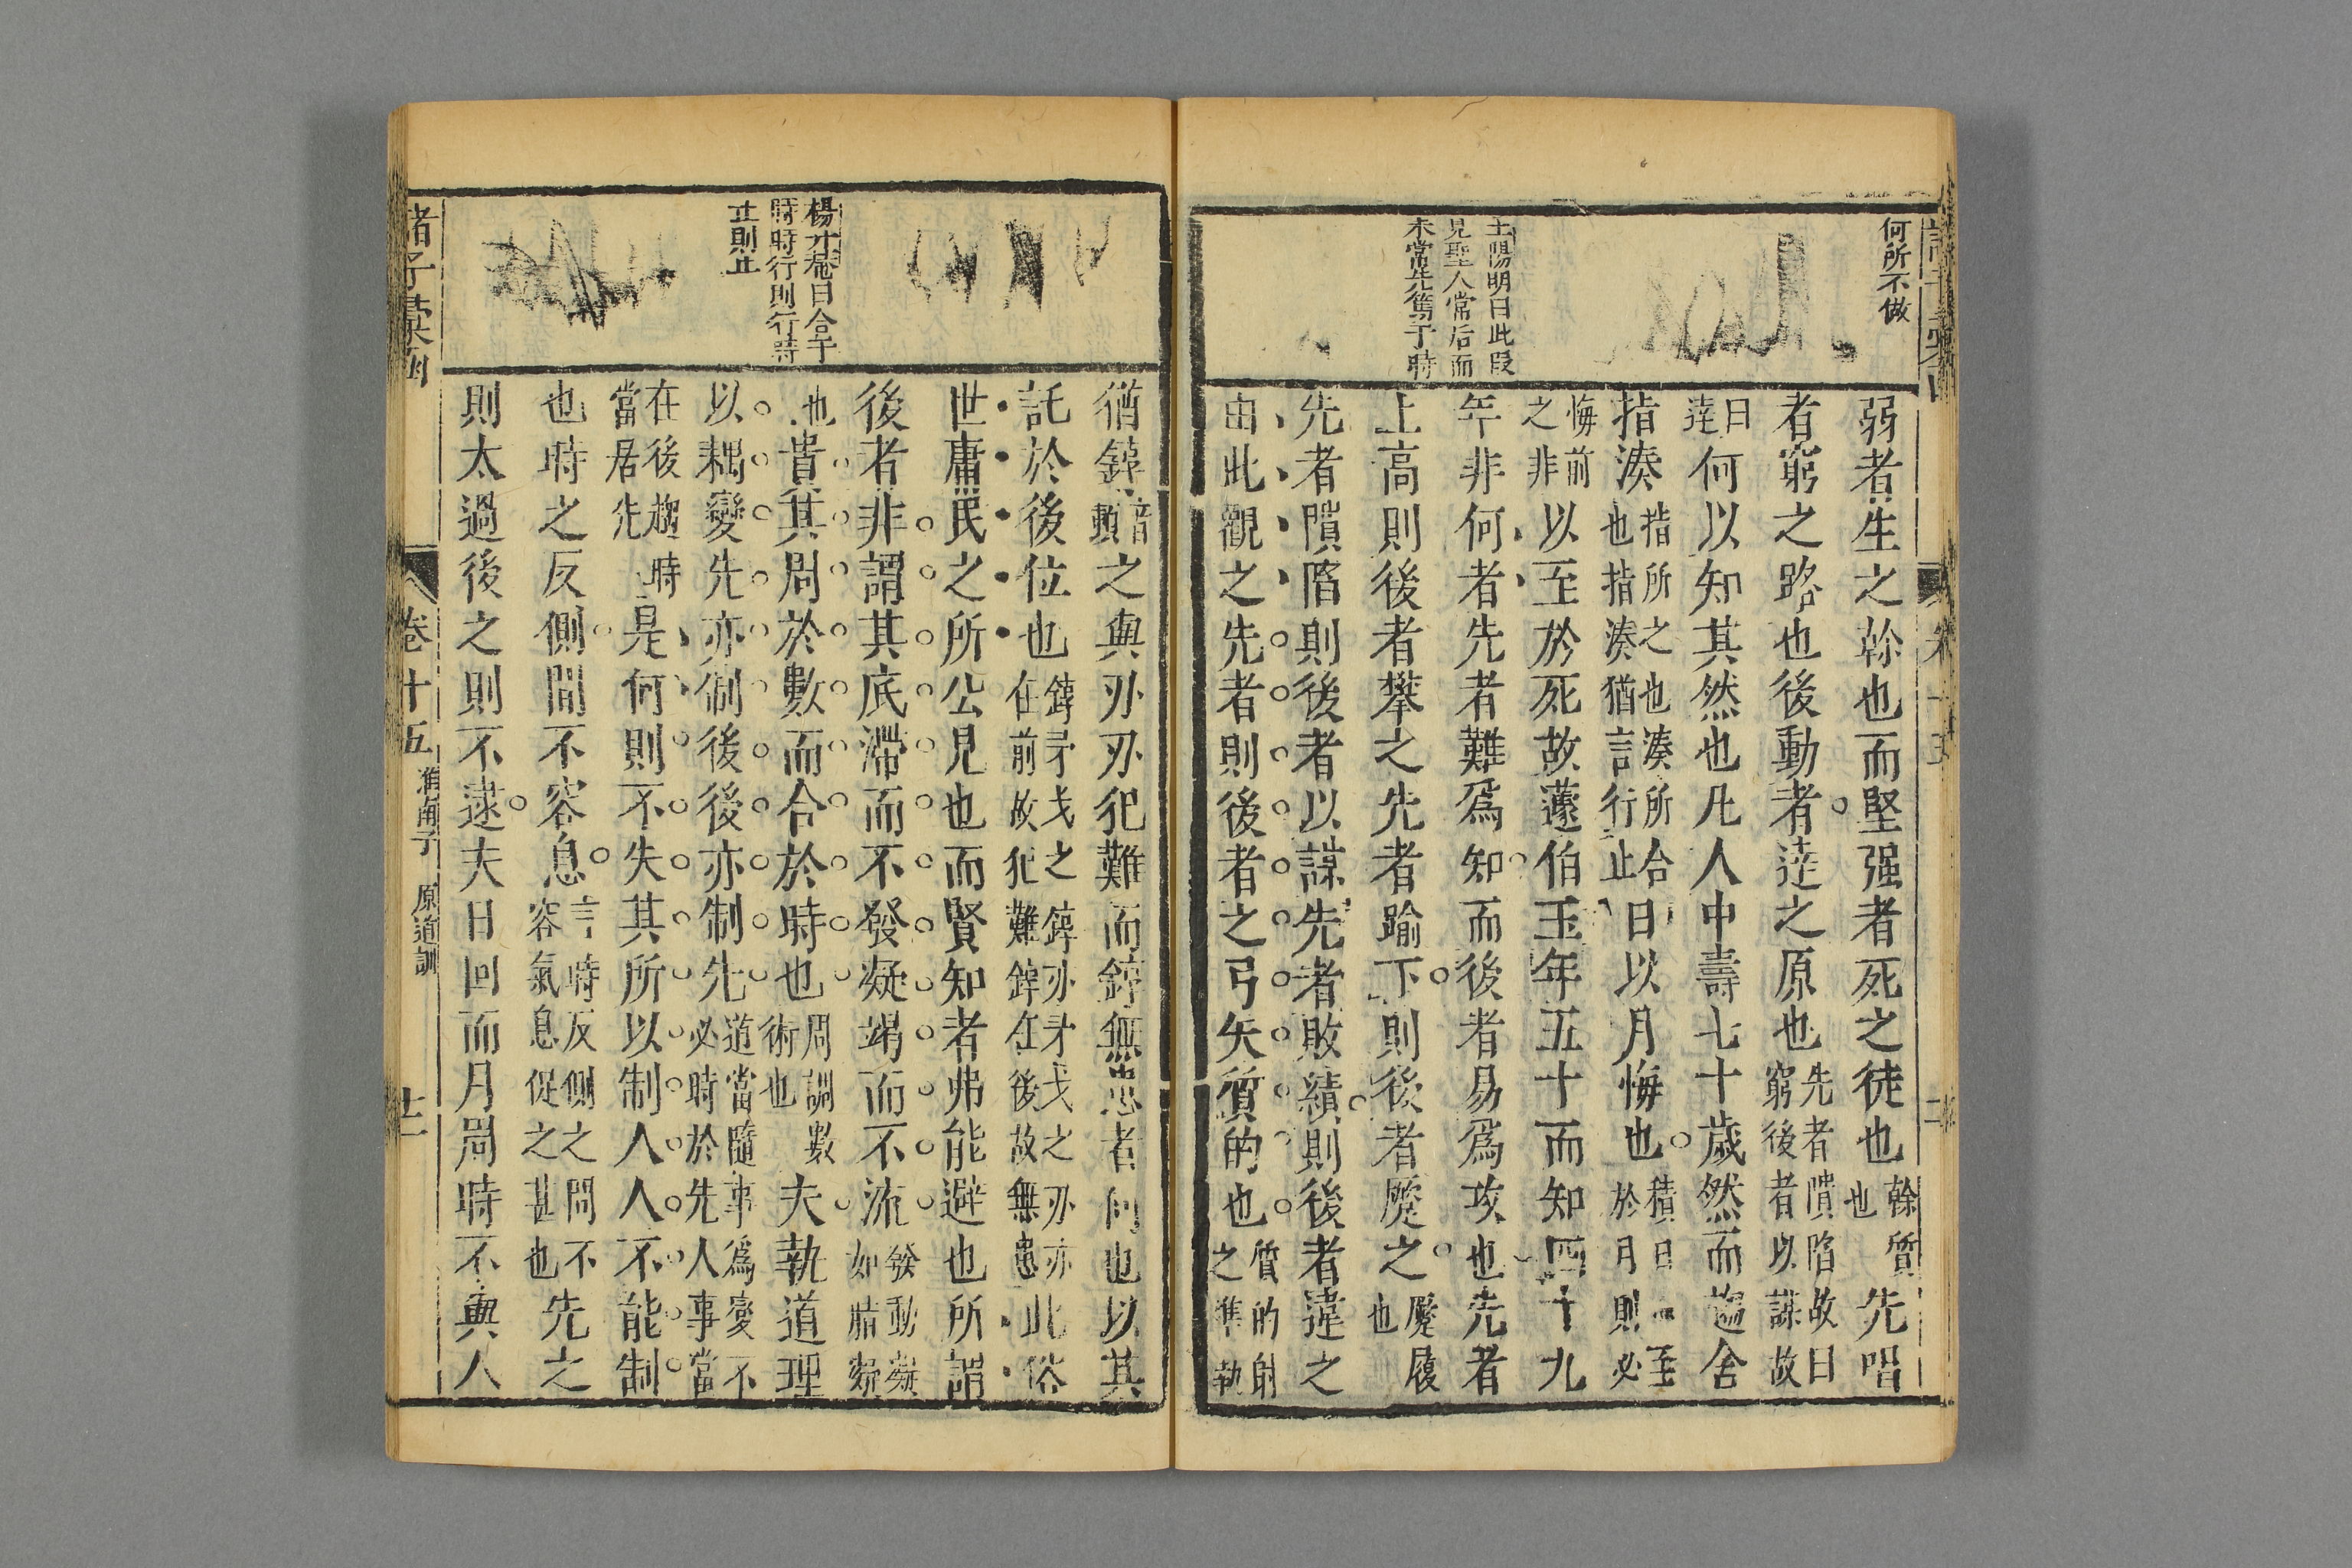 何所不做
王陽明曰此段
見聖人常后而
未常先篤于時
弱者生之榦也而堅强者死之徒也榦質也先唱
者窮之路也後動者逹之原也先者隤陷故曰窮後者以謀故
曰逹何以知其然也凡人中壽七十歲然而趨舍
指湊指所之也湊所合也指湊猶言行止日以月悔也積日至於月則必
悔前之非以至於死故蘧伯玉年五十而知四十九
年非何者先者難爲知而後者易爲攻也先者
上高則後者攀之先者踰下則後者蹷之蹷履也
先者隤陷則後者以謀先者敗績則後者違之
由此觀之先者則後者之弓矢質的也質的射之準執
楊升菴曰合于
時時行則行時
止則止
猶錞音頓之與刃刃犯難而錞無患者何也以其
託於後位也錞矛戈之錞亦矛戈之刃亦在前故犯難錞在後故無患此俗
世庸民之所公見也而賢知者弗能避也所謂
後者非謂其底滯而不發凝竭而不流發動凝如脂凝
也貴其周於數而合於時也周調數術也夫執道理
以耦變先亦制後後亦制先道當隨事爲變不必時於先人事當
在後趨時當居先是何則不失其所以制人人不能制
也時之反側間不容息言時反側之間不容氣息促之甚也先之
則太過後之則不逮夫日回而月周時不與人
諸子彙函
卷十五
淮南子
原道訓